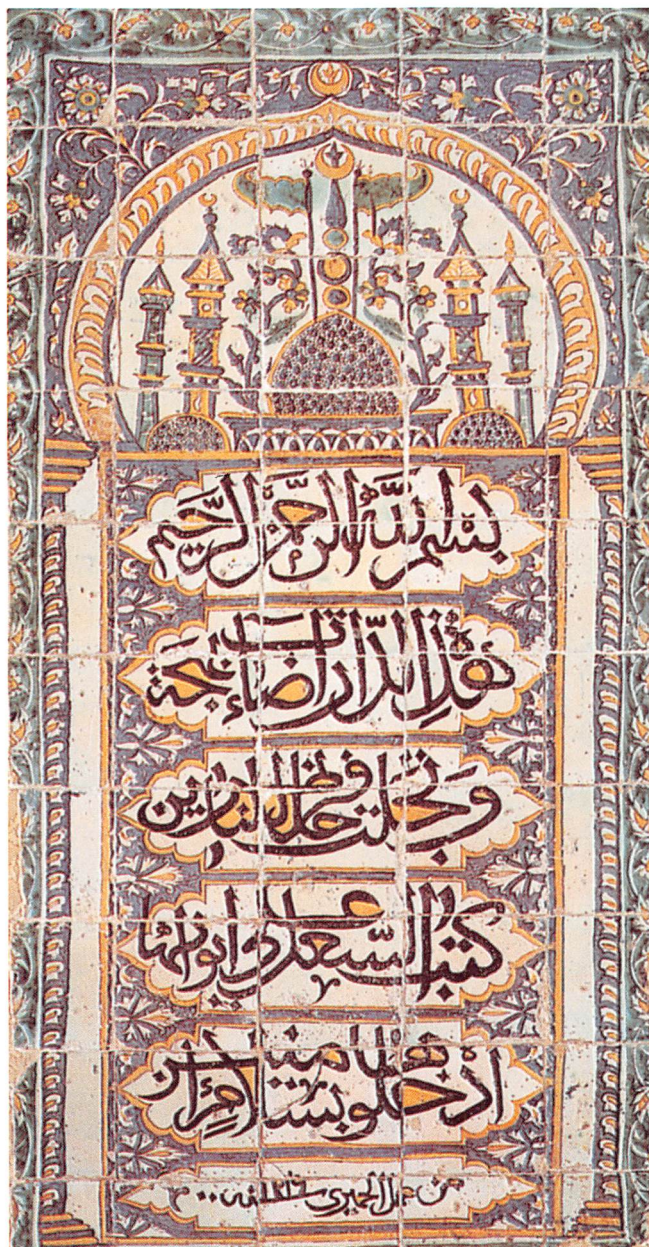 بسم الله الرحمن الرحيم
هذه الدار أضاءت بهجة
وتجلت فرحا للناظرين
كتب السعد على أبوابها
ادخلوها بسلام آمنين
من عمل